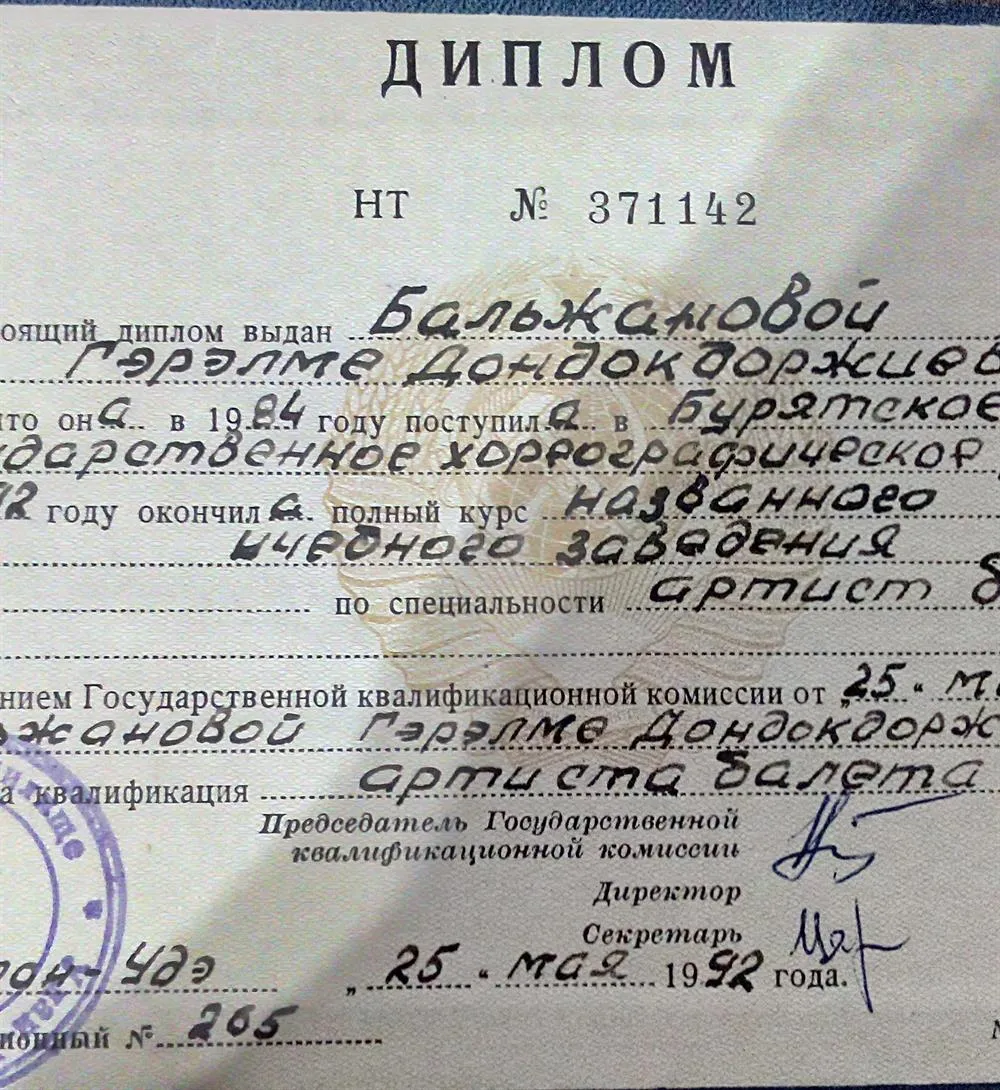 ДИПЛОМ
НТ № 371142
оящий диплом выдан Бальжановой
Гэрэлме Дондокдоржиев
что она в 1984 году поступила в Бурятское
ударственное хореографическое
92 году окончила полный курс названного
учебного заведения
по специальности артист б
нием Государственной квалификационной комиссии от „25“ ма
жановой Гэрэлме Дондокдорж
а квалификация артиста балета
Председатель Государственной
квалификационной комиссии
Директор
Секретарь
лан-Удэ „25“ мая 1992 года.
ионный № 265